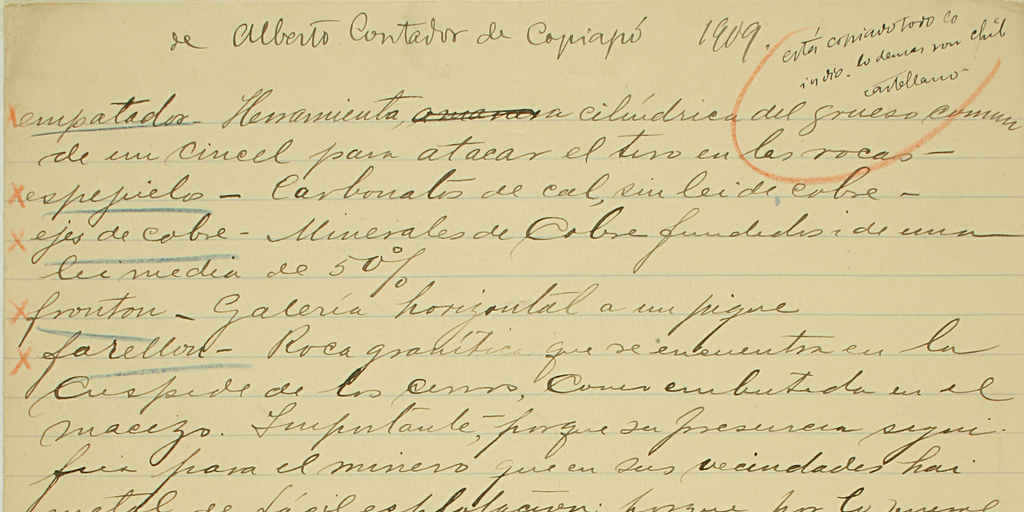 de Alberto Contador de Copiapó 1909.
está copiado todo lo
indio. lo demas son chil
castellano-
empatador- Herramienta, a cilíndrica del grueso comun
de un cincel para atacar el tiro en las rocas-
espejuelo- Carbonatos de cal, sin lei de cobre-
ejes de cobre- Minerales de Cobre fundidos i de una
lei media de 50%
fronton- Galería horizontal a un pique
farellon- Roca granítica que se encuentra en la
Cuspide de los cerros, como embutida en el
macizo. Importante, porque su presencia signi-
fica para el minero que en sus vecindades hai
metal de fácil esplotacion: porque por lo jeneral